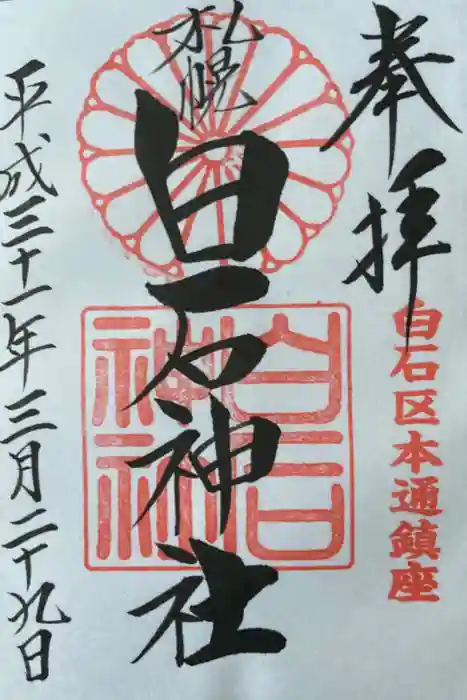 奉拝
白石区本通鎮座
札幌
白石神社
白石神社
平成三十一年三月二十九日